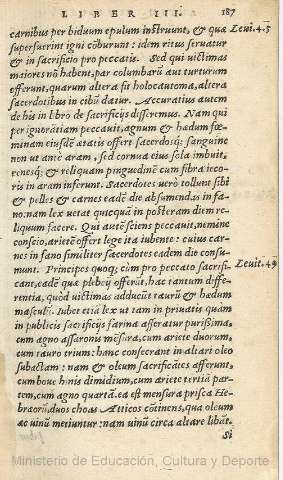 LIBER III. 187
carnibus per biduum epulum instruunt, & quæ Leui. 4. 5
superfuerint igni cōburunt: idem ritus seruatur
& in sacrificio pro peccatis. Sed qui victimas
maiores nō habent, par columbarū aut turturum
offerunt, quarum altera fit holocautoma, altera
sacerdotibus in cibū datur. Accuratius autem
de his in libro de sacrificijs disseremus. Nam qui
per ignorātiam peccauit, agnum & hædum fœ-
minam eiusdē ætatis offert sacerdosq; sanguine
non vt ante aram, sed cornua eius sola imbuit,
renesq; & reliquam pinguedinē cum fibra ieco-
ris in aram inferunt. Sacerdotes verò tollunt sibi
& pelles & carnes eadē die absumendas in fa-
no: nam lex vetat quicquā in posteram diem re-
liquum facere. Qui autē sciens peccauit, nemine
conscio, arietē offert lege ita iubente: cuius car-
nes in fano similiter sacerdotes eadem die consu-
munt. Principes quoq; cùm pro peccato sacrifi- Leuit. 4. 9
cant, eadē quæ plebeij offerūt, hac tantum diffe-
rentia, quòd victimas adducūt taurū & hædum
masculū. Iubet etiā lex vt tam in priuatis quàm
in publicis sacrificijs farina afferatur purissima,
cum agno assaronis mēsura, cum ariete duorum,
cum tauro trium: hanc consecrant in altari oleo
subactam: nam & oleum sacrificātes afferunt,
cum boue hinis dimidium, cum ariete tertiā par-
tem, cum agno quartā. ea est mensura prisca He-
bræorū, duos choas Atticos cōtinens, qua oleum
ac vinū metiuntur: nam vinū circa altare libāt.
Si
Ministerio de Educación, Cultura y Deporte